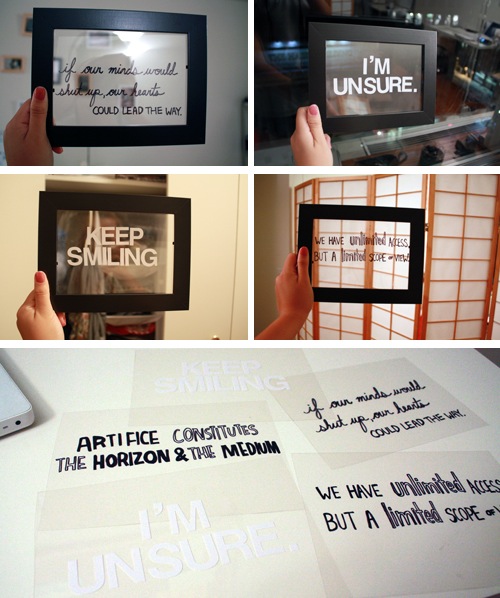 if our minds would
shut up, our hearts
COULD LEAD THE WAY.
I'M
UNSURE.
KEEP
SMILING
WE HAVE unlimited ACCESS,
BUT A limited SCOPE OF VIEW
KEEP
SMILING
if our minds would
shut up, our hearts
COULD LEAD THE WAY.
ARTIFICE CONSTITUTES
THE HORIZON & THE MEDIUM
WE HAVE unlimited ACCESS
BUT A limited SCOPE OF
I'M
UNSURE.